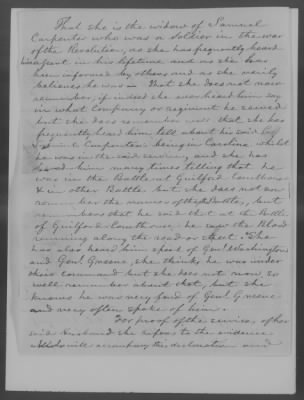 That she is the widow of Samuel
Carpenter who was a soldier in the war
of the Revolution, as she has frequently heard
him in his lifetime and as she has
been informed by others and as she verily
believes he was. That she does not now
remember, if indeed she ever heard him say
in what Company or regiment he served
but she does remember that she has
frequently heard him tell about his said
Samuel Carpenter being in Carolina whilst
he was in the said service, and she has
heard him many times telling that he
was in the Battle at Guilford Courthouse
& in other Battles but she does not now
remember the names of the Battles, but
remembers that he said that at the Battle
of Guilford Courthouse he saw the Blood
running along the road or that. She
has also heard him speak of Genl. Washington
and Genl. Greene, she thinks he was under
their command but she does not now, so
well remember about that, but she
knows he was very fond of Genl. Greene
and very often spoke of him.
For proof of the services of her
said husband she refers to the evidence
which will accompany this declaration and